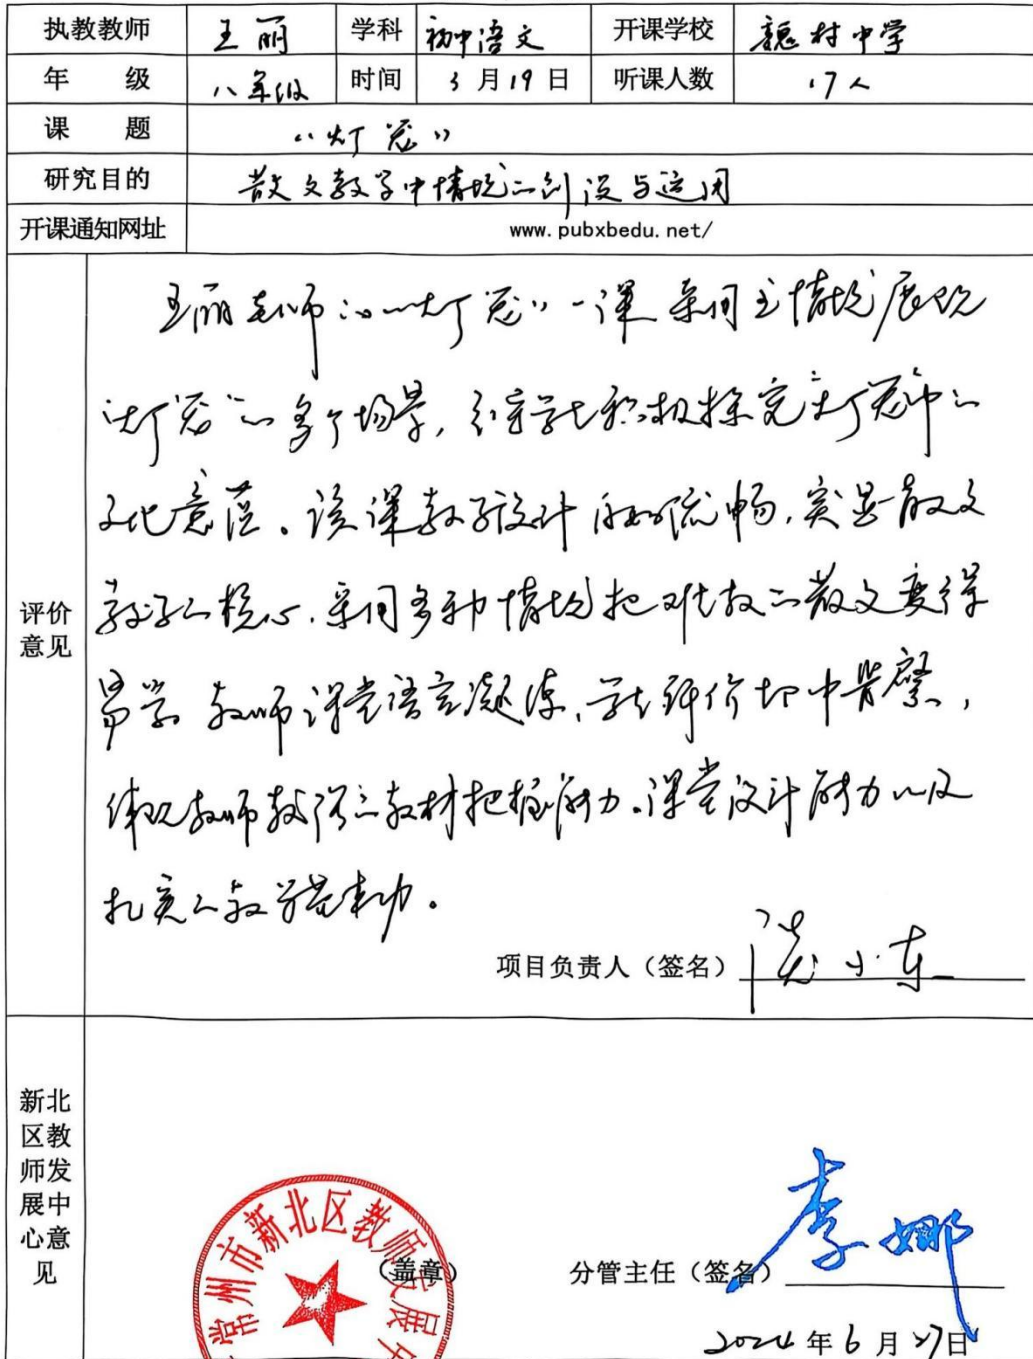 执教教师 王丽 学科 初中语文 开课学校 魏村中学
年 级 八年级 时间 3月19日 听课人数 17人
课 题 《灯笼》
研究目的 散文教学中情境的创设与运用
开课通知网址 www.pubxbedu.net/
评价意见
王丽老师的《灯笼》一课采用主情境展现
“灯笼”的多个场景，引导学生积极探究灯笼中的
文化意蕴。该课教学设计 流畅，实是散文
教学的核心。采用多种情境把难教的散文变得
易学 教师课堂语言凝练、学生评价切中肯綮，
体现教师 教材把握能力、课堂设计能力以及
扎实的教学基本功。
项目负责人（签名） 小东
新北区教师发展中心意见
常州市新北区教师发展中
（盖章） 分管主任（签名） 李娜
2024年6月27日